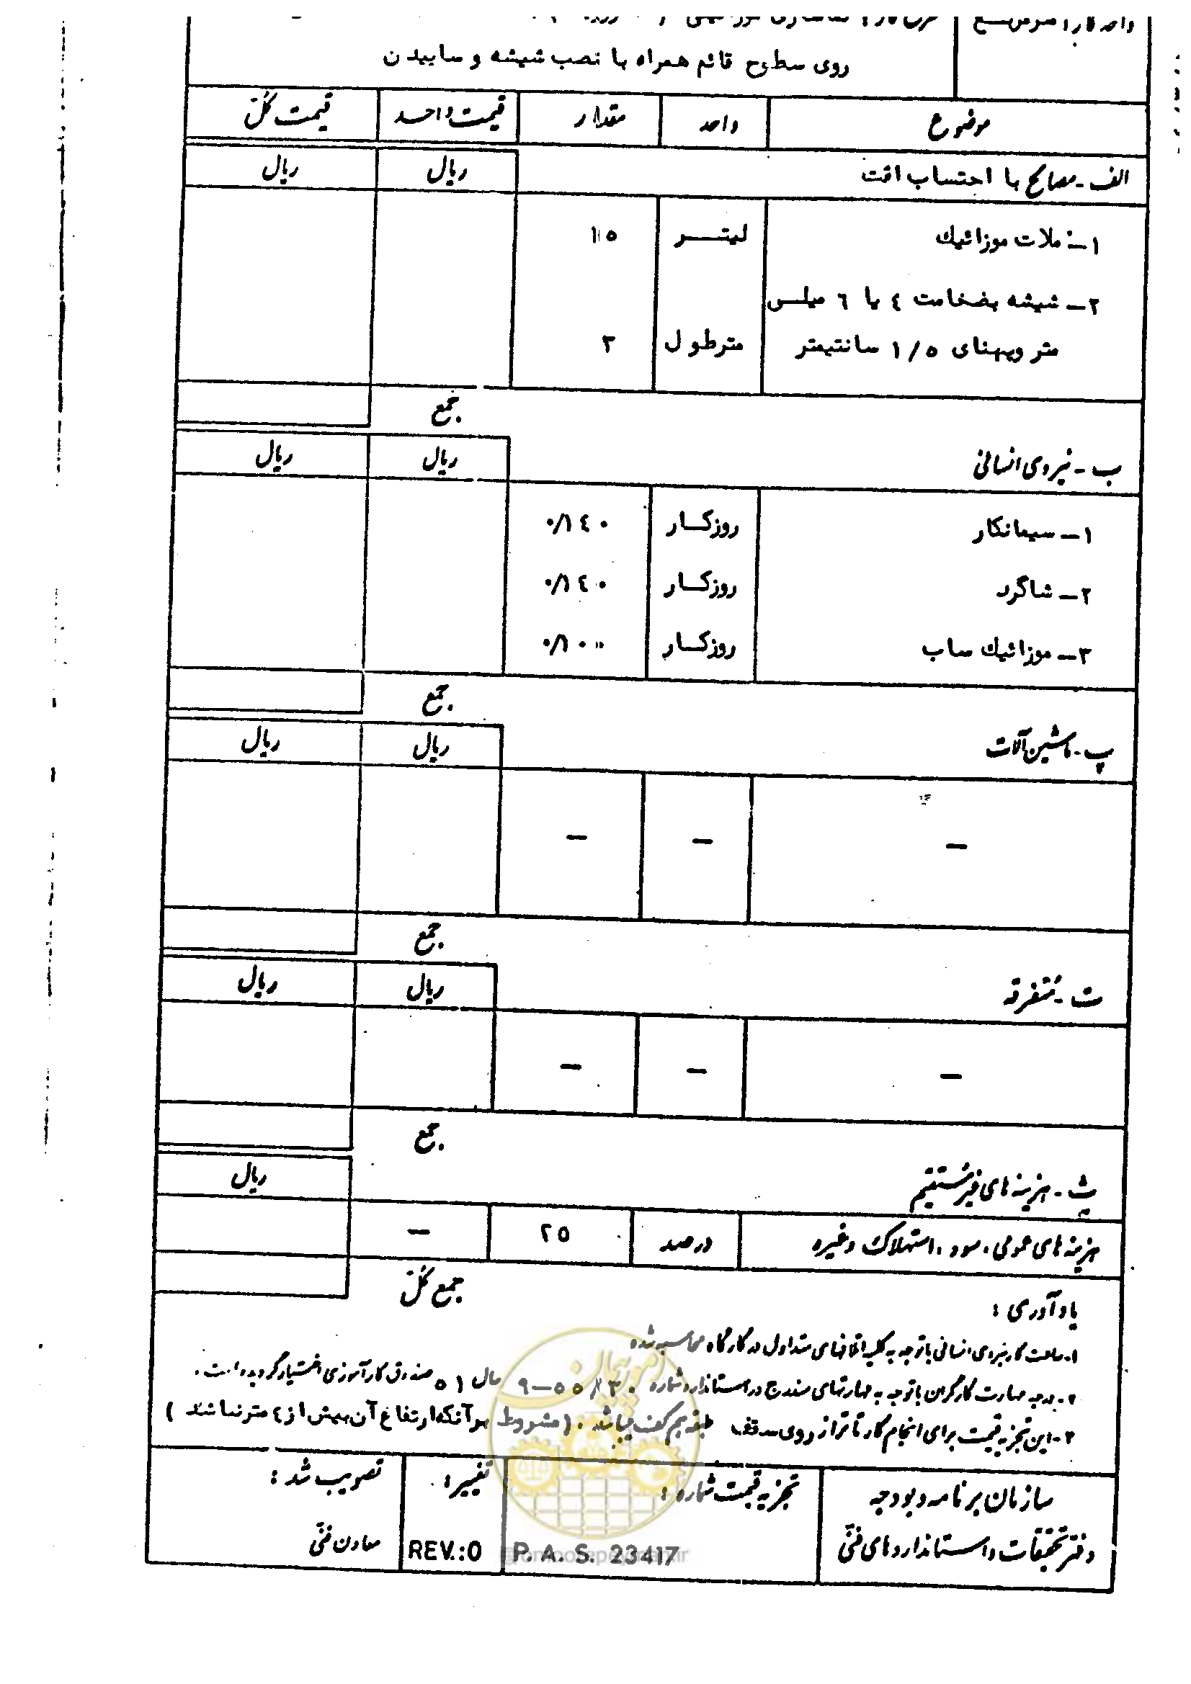 واحد کار: متر مربع
روی سطوح قائم همراه با نصب شیشه و ساییدن
موضوع واحد مقدار قیمت واحد قیمت کل
الف - مصالح با احتساب افت ریال ریال
۱- ملات موزائیک لیتــر ۱۵
۲- شیشه بضخامت ٤ یا ٦ میلی
متر وپهنای ۱/۵ سانتیمتر مترطول ۳
جمع
ب - نیروی انسانی ریال ریال
۱- سیمانکار روزکار ۰/۱٤۰
۲- شاگرد روزکار ۰/۱٤۰
۳- موزائیک ساب روزکار ۰/۱۰۰
جمع
پ - ماشین آلات ریال ریال
– – –
جمع
ت - متفرقه ریال ریال
– – –
جمع
ث - هزینه های غیرمستقیم ریال
هزینه های عمومی، سود، استهلاک وغیره درصد ۲۵ –
جمع کل
یادآوری :
۱- ساعت کار نیروی انسانی با توجه به کلیه اتلافهای متداول در کارگاه محاسبه شده
۲- درجه مهارت کارگران با توجه به مهارتهای مندرج در استاندارد شماره ۹-۵۵/۳۰ سال ۵۱ صندوق کارآموزی اختیار گردیده است .
۳- این تجزیه قیمت برای انجام کار تا تراز روی سقف طبقه هم کف میباشد . (مشروط بر آنکه ارتفاع آن بیش از ٤ متر نباشد )
سازمان برنامه و بودجه تجزیه قیمت شماره : تغییر : تصویب شد :
دفتر تحقیقات و استانداردهای فنی P. A. S. 23417 REV.:0 معاون فنی
امور پیمان